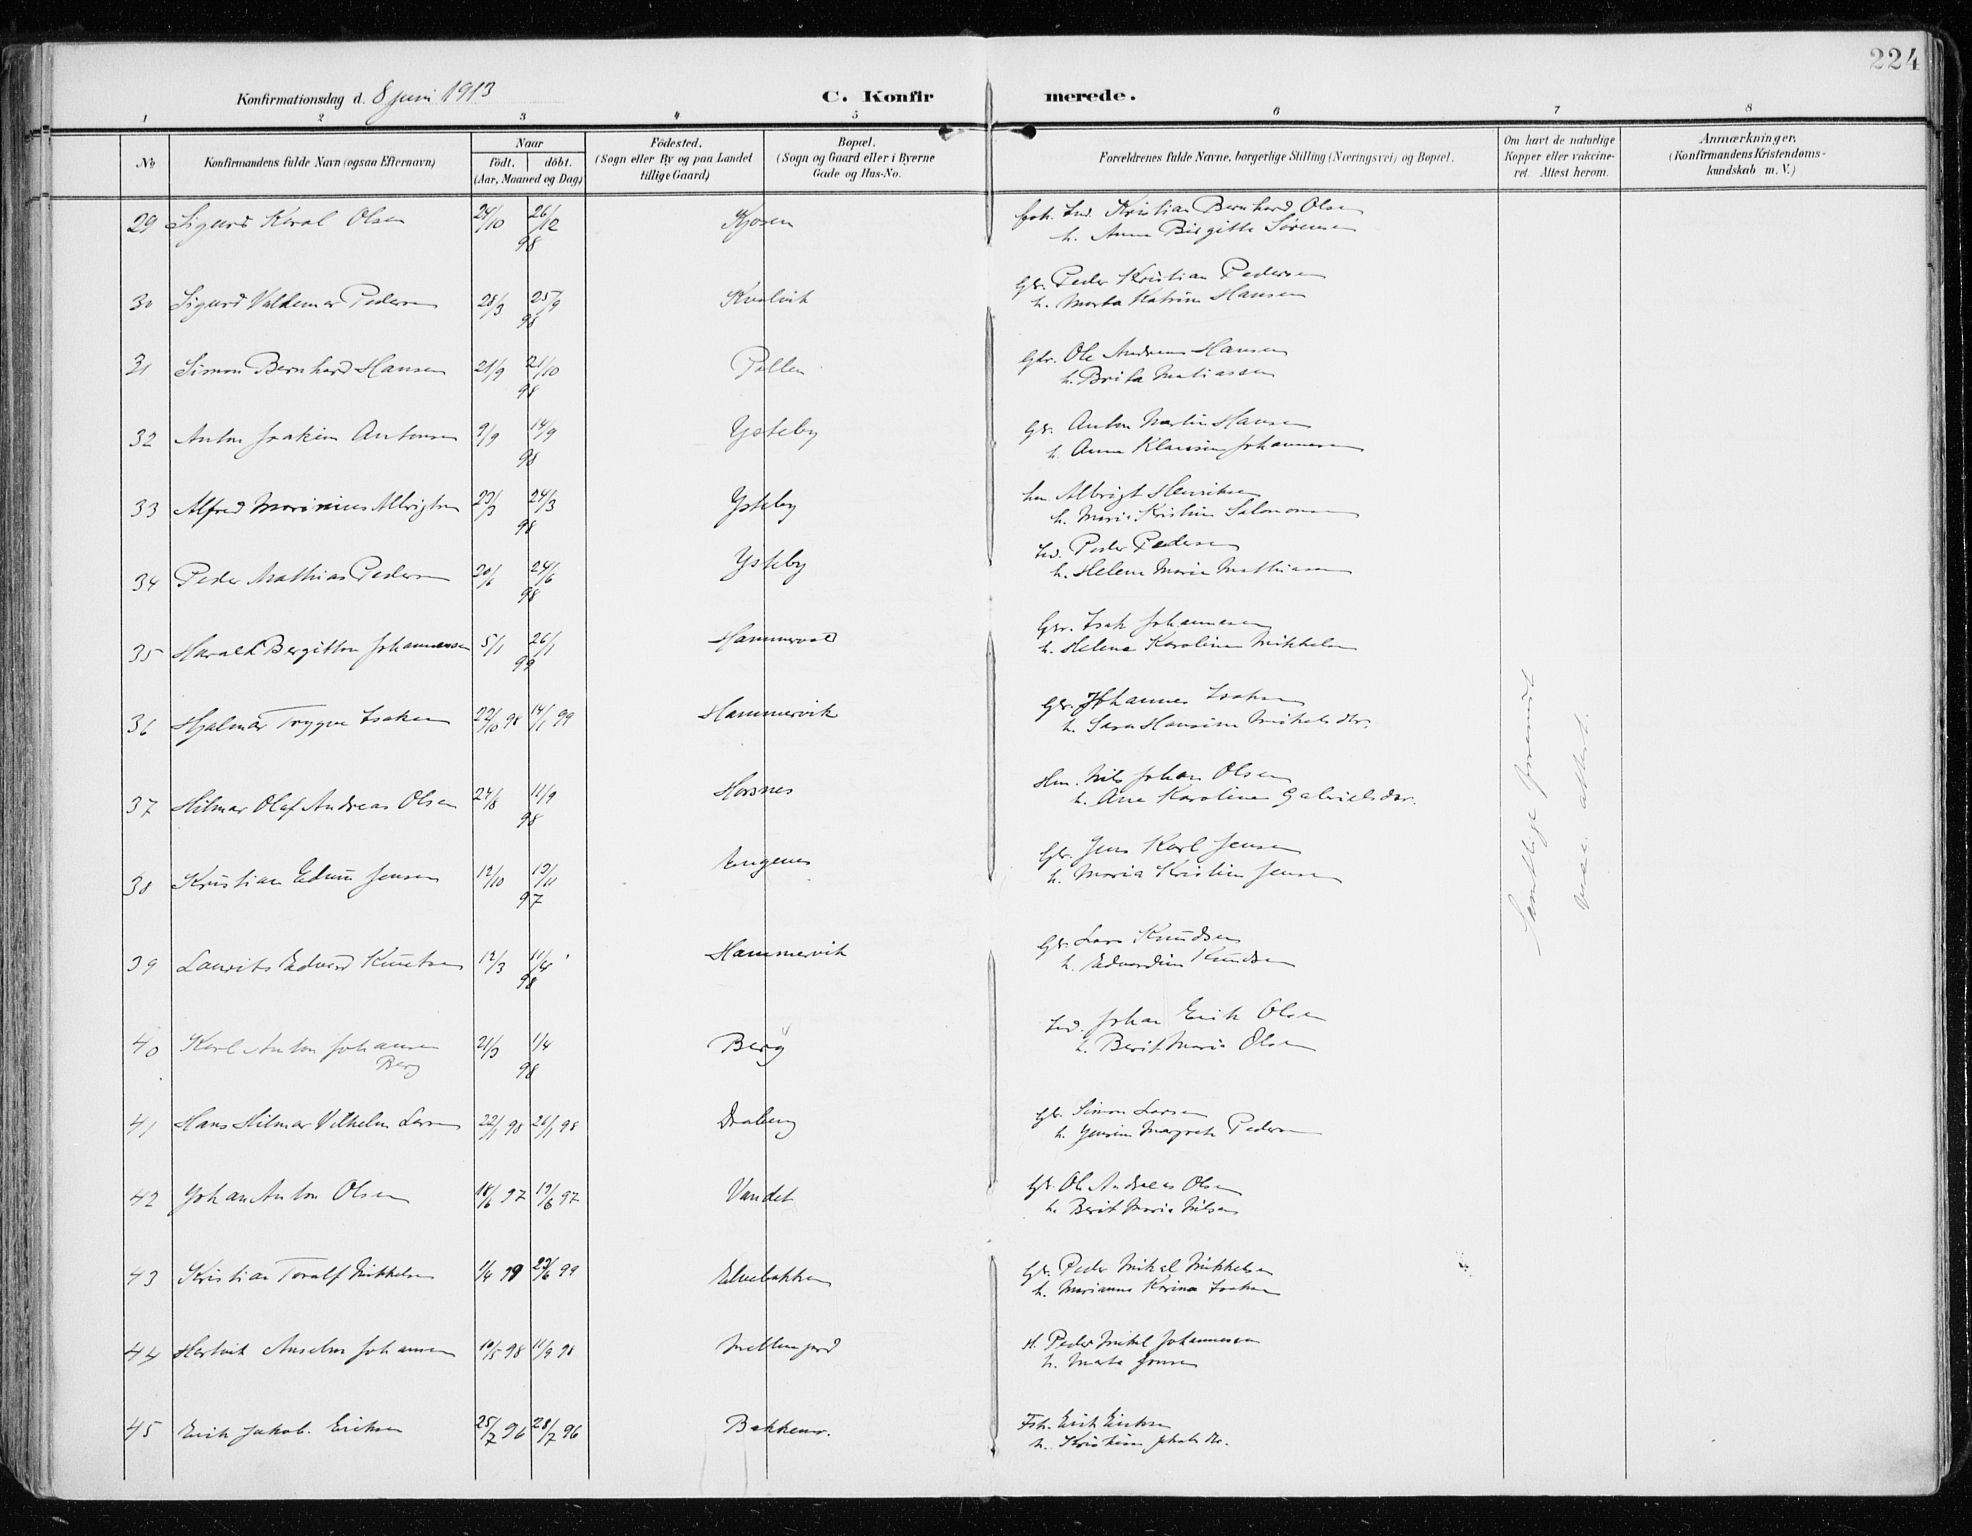 224
Konfirmationsdag d. 8 juni 1913
C. Konfirmerede.
1 2 3 4 5 6 7 8
No
Konfirmandens fulde Navn (ogsaa Efternavn)
Naar
födt. döbt.
(Aar, Maaned og Dag)
Födested.
(Sogn eller By og paa Landet
tillige Gaard)
Bopæl.
(Sogn og Gaard eller i Byerne
Gade og Hus-No.
Forældrenes fulde Navne, borgerlige Stilling (Næringsvei) og Bopæl.
Om havt de naturlige
Kopper eller vakcine-
ret. Attest herom.
Anmærkninger.
(Konfirmandens Kristendoms-
kundskab m. V.)
29 Sigurd Olsen 24/10 26/12 Kjosen Kristian Bernhard Olsen
98 h. Anna Birgitte Sörensen
30 Sigurd Valdemar Pedersen 28/3 25/9 Kvalvik Gbr. Peder Kristian Pedersen
98 h. Marta Katrine Hansen
31 Simon Bernhard Hansen 21/9 21/10 Pollen Gbr. Ole Andreas Hansen
98 h. Brita Matiassen
32 Anton Joakim Antonsen 9/9 14/9 Ysteby Gbr. Anton Martin Hansen
98 h. Anna Johannesen
33 Alfred Marinius Albrigtsen 24/3 Ysteby Albrigt Henriksen
98 h. Maria Kristine Salomonsen
34 Peder Mathias Pedersen 24/6 Ysteby Ind. Peder Pedersen
98 h. Helene Marie Mathiasen
35 Harald Bergitton Johannessen 5/1 26/1 Hammervold Gbr. Isak Johannesen
99 h. Helene Karoline Mikkelsen
36 Hjalmar Trygve Isaksen 22/10 98 14/1 99 Hammervik Gbr. Johannes Isaksen
h. Sara Hansine Mikelsdtr.
37 Hilmar Olaf Andreas Olsen 24/8 11/9 Horsnes Nils Johan Olsen
98 h. Ane Karoline Gabrielsdtr.
38 Kristian Edvin Jensen 12/10 13/11 Gbr. Jens Karl Jensen
97 h. Maria Kristine Jensen
39 Laurits Edvard Knutsen 12/3 11/4 Hammervik Gbr. Lars Knudsen
98 h. Edvardine Knudsen
40 Karl Anton Johansen 21/3 1/4 Berg Ind. Johan Erik Olsen
Berg 98 h. Berit Maria Olsen
41 Hans Hilmar Vilhelm Larsen 22/1 98 26/1 98 Gbr. Simon Larsen
h. Margrete Pedersen
42 Johan Anton Olsen 18/6 97 19/6 97 Vandet Gbr. Ole Andreas Olsen
h. Berit Maria Nilsen
43 Kristian Toralf Mikkelsen 1/4 99 29/6 99 Elvebakken Gbr. Peder Mikal Mikkelsen
h. Marianna Karina Isaksen
44 Hartvik Anselm Johansen 10/5 98 11/9 98 Mellemjord H. Peder Mikal Johannessen
h. Marta Jonsen
45 Erik Jakob Eriksen 25/7 96 28/7 96 Bakkemo. Fsk. Erik Eriksen
h. Kristine Jakobsdtr.
Samtlige fremvist
vac. attest.